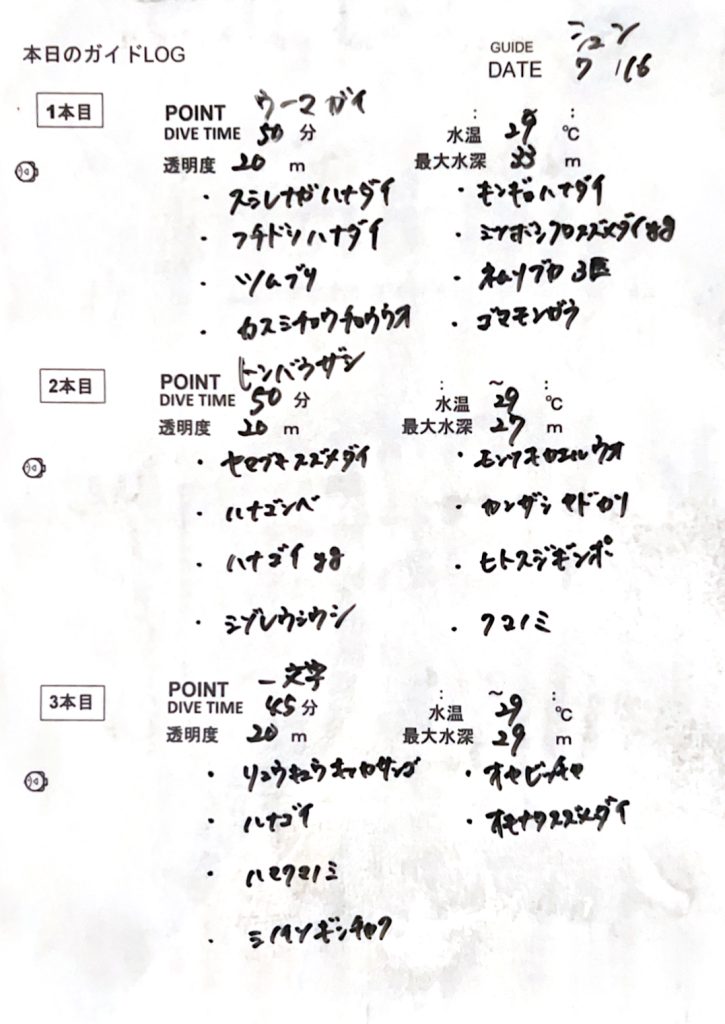 本日のガイドLOG
GUIDE シュン
DATE 7/16
1本目
POINT ウーマガイ
DIVE TIME 50 分
水温 ~29 ℃
透明度 20 m
最大水深 33 m
・スミレナガハナダイ
・キンギョハナダイ
・フチドリハナダイ
・ミツボシクロスズメダイyg
・ツムブリ
・ネムリブカ 3匹
・カスミチョウチョウウオ
・ゴマモンガラ
2本目
POINT トンバラザシ
DIVE TIME 50 分
水温 ~29 ℃
透明度 20 m
最大水深 27 m
・ヤマブキスズメダイ
・モンツキカエルウオ
・ハナゴンベ
・カンザシヤドカリ
・ハナゴイ yg
・ヒトスジギンポ
・ミゾレウミウシ
・クマノミ
3本目
POINT 一文字
DIVE TIME 45 分
水温 ~29 ℃
透明度 20 m
最大水深 29 m
・リュウキュウキッカサンゴ
・オヤビッチャ
・ハナゴイ
・オキナワスズメダイ
・ハマクマノミ
・シライトイソギンチャク